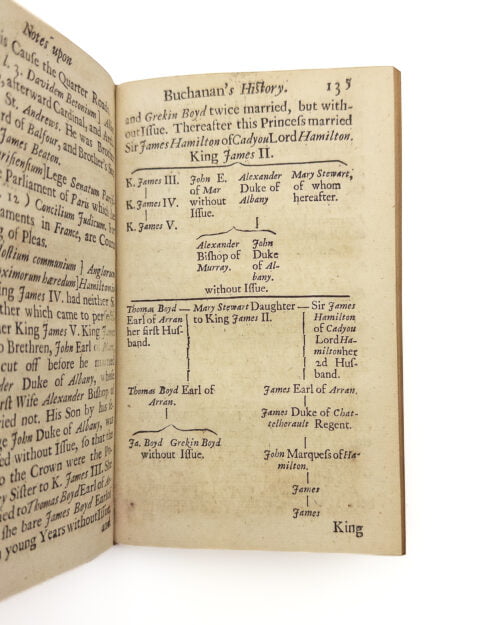 Notes upon
is Cause the Quarter Roads,
l. 3. Davidem Betonium]
afterward Cardinal, and
St. Andrews. He was Broth
rd of Balfour, and Brother's
James Beaton.
]Lege Senatum
Parliament of Paru which
12) Concilium Judicum.
aments in France, are
g of Pleas.
ostium communium] Anglorum
oximorum hæredum]Hamiltonii
ng James IV. had neither
ther which came to
her King James V. King
o Brethren, John Earl of
cut off before he
der Duke of Albany,
rst Wife Alexander Bishop of
ried not. His Son by his
ge John Duke of Albany, was
d without Issue, so that
o the Crown were the
y Sister to K. James III.
ied to Thomas Boyd Earl of
she bare James Boyd Earl
n young Years without Issue,
and
Buchanan's History. 135
and Grekin Boyd twice married, but with-
out Issue. Thereafter this Princess married
Sir James Hamilton of Cadyou Lord Hamilton.
King James II.
K. James III. John E. Alexander Mary Stewart,
of Mar Duke of of whom
K. James IV. without Albany hereafter.
Issue.
K. James V.
Alexander John
Bishop of Duke
Murray. of Al-
bany.
without Issue.
Thomas Boyd — Mary Stewart Daughter — Sir James
Earl of Arran to King James II. Hamilton
her first Hus- of Cadyou
band. Lord Ha-
milton her
2d Hus-
band.
Thomas Boyd Earl of James Earl of Arran.
Arran.
James Duke of Chat-
telherault Regent.
Ja. Boyd Grekin Boyd
without Issue. John Marquess of Ha-
milton,
James
James
King